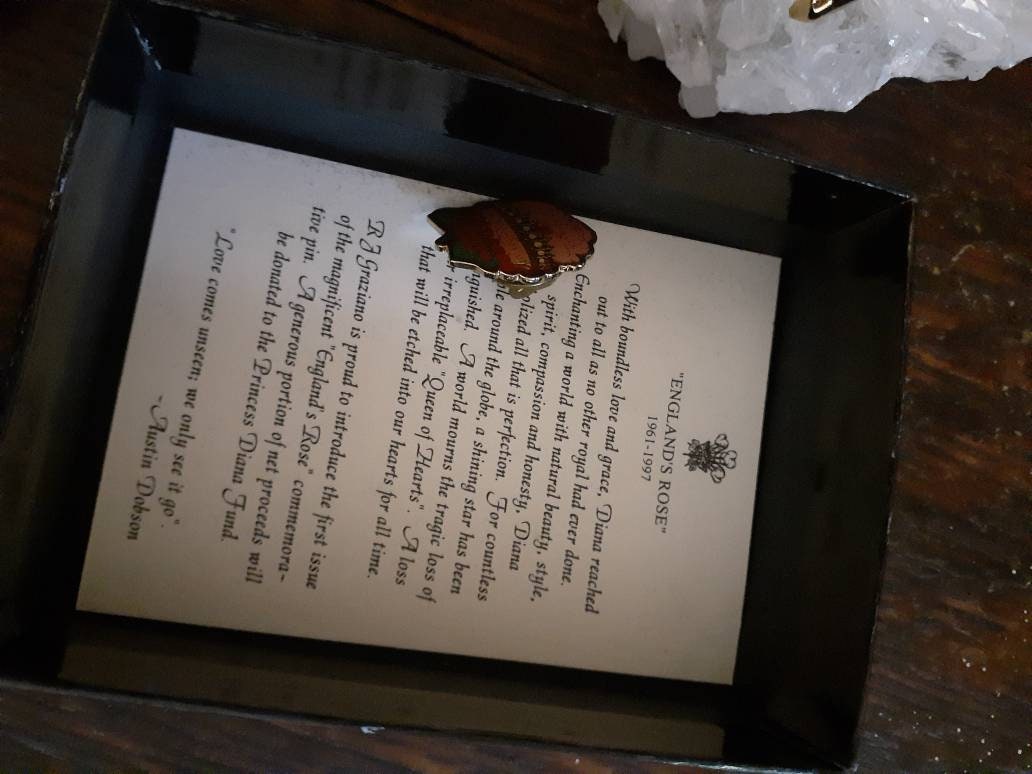 "ENGLAND'S ROSE"
1961-1997
With boundless love and grace, Diana reached
out to all as no other royal had ever done.
Enchanting a world with natural beauty, style,
spirit, compassion and honesty, Diana
olized all that is perfection. For countless
le around the globe, a shining star has been
guished. A world mourns the tragic loss of
r irreplaceable "Queen of Hearts". A loss
that will be etched into our hearts for all time.
R J Graziano is proud to introduce the first issue
of the magnificent "England's Rose" commemora-
tive pin. A generous portion of net proceeds will
be donated to the Princess Diana Fund.
"Love comes unseen; we only see it go".
-Austin Dobson